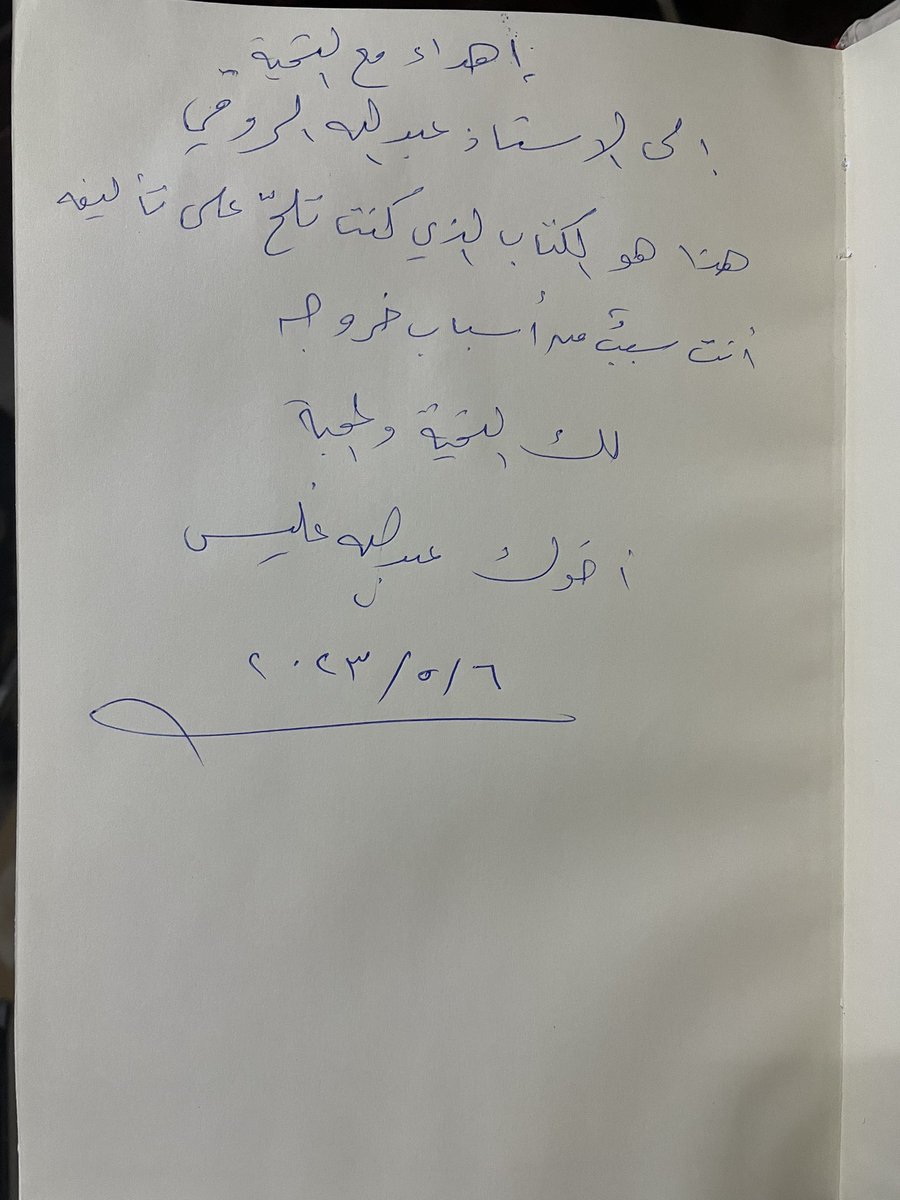 إهداء مع التحية ..
إلى الاستاذ عبدالله الروقي
هذا هو الكتاب الذي كنت تلحّ على تأليفه
أنت سببٌ من أسباب خروجه
لك التحية والمحبة
أخوك عبدالله غليس
٢٠٢٣/٥/٦